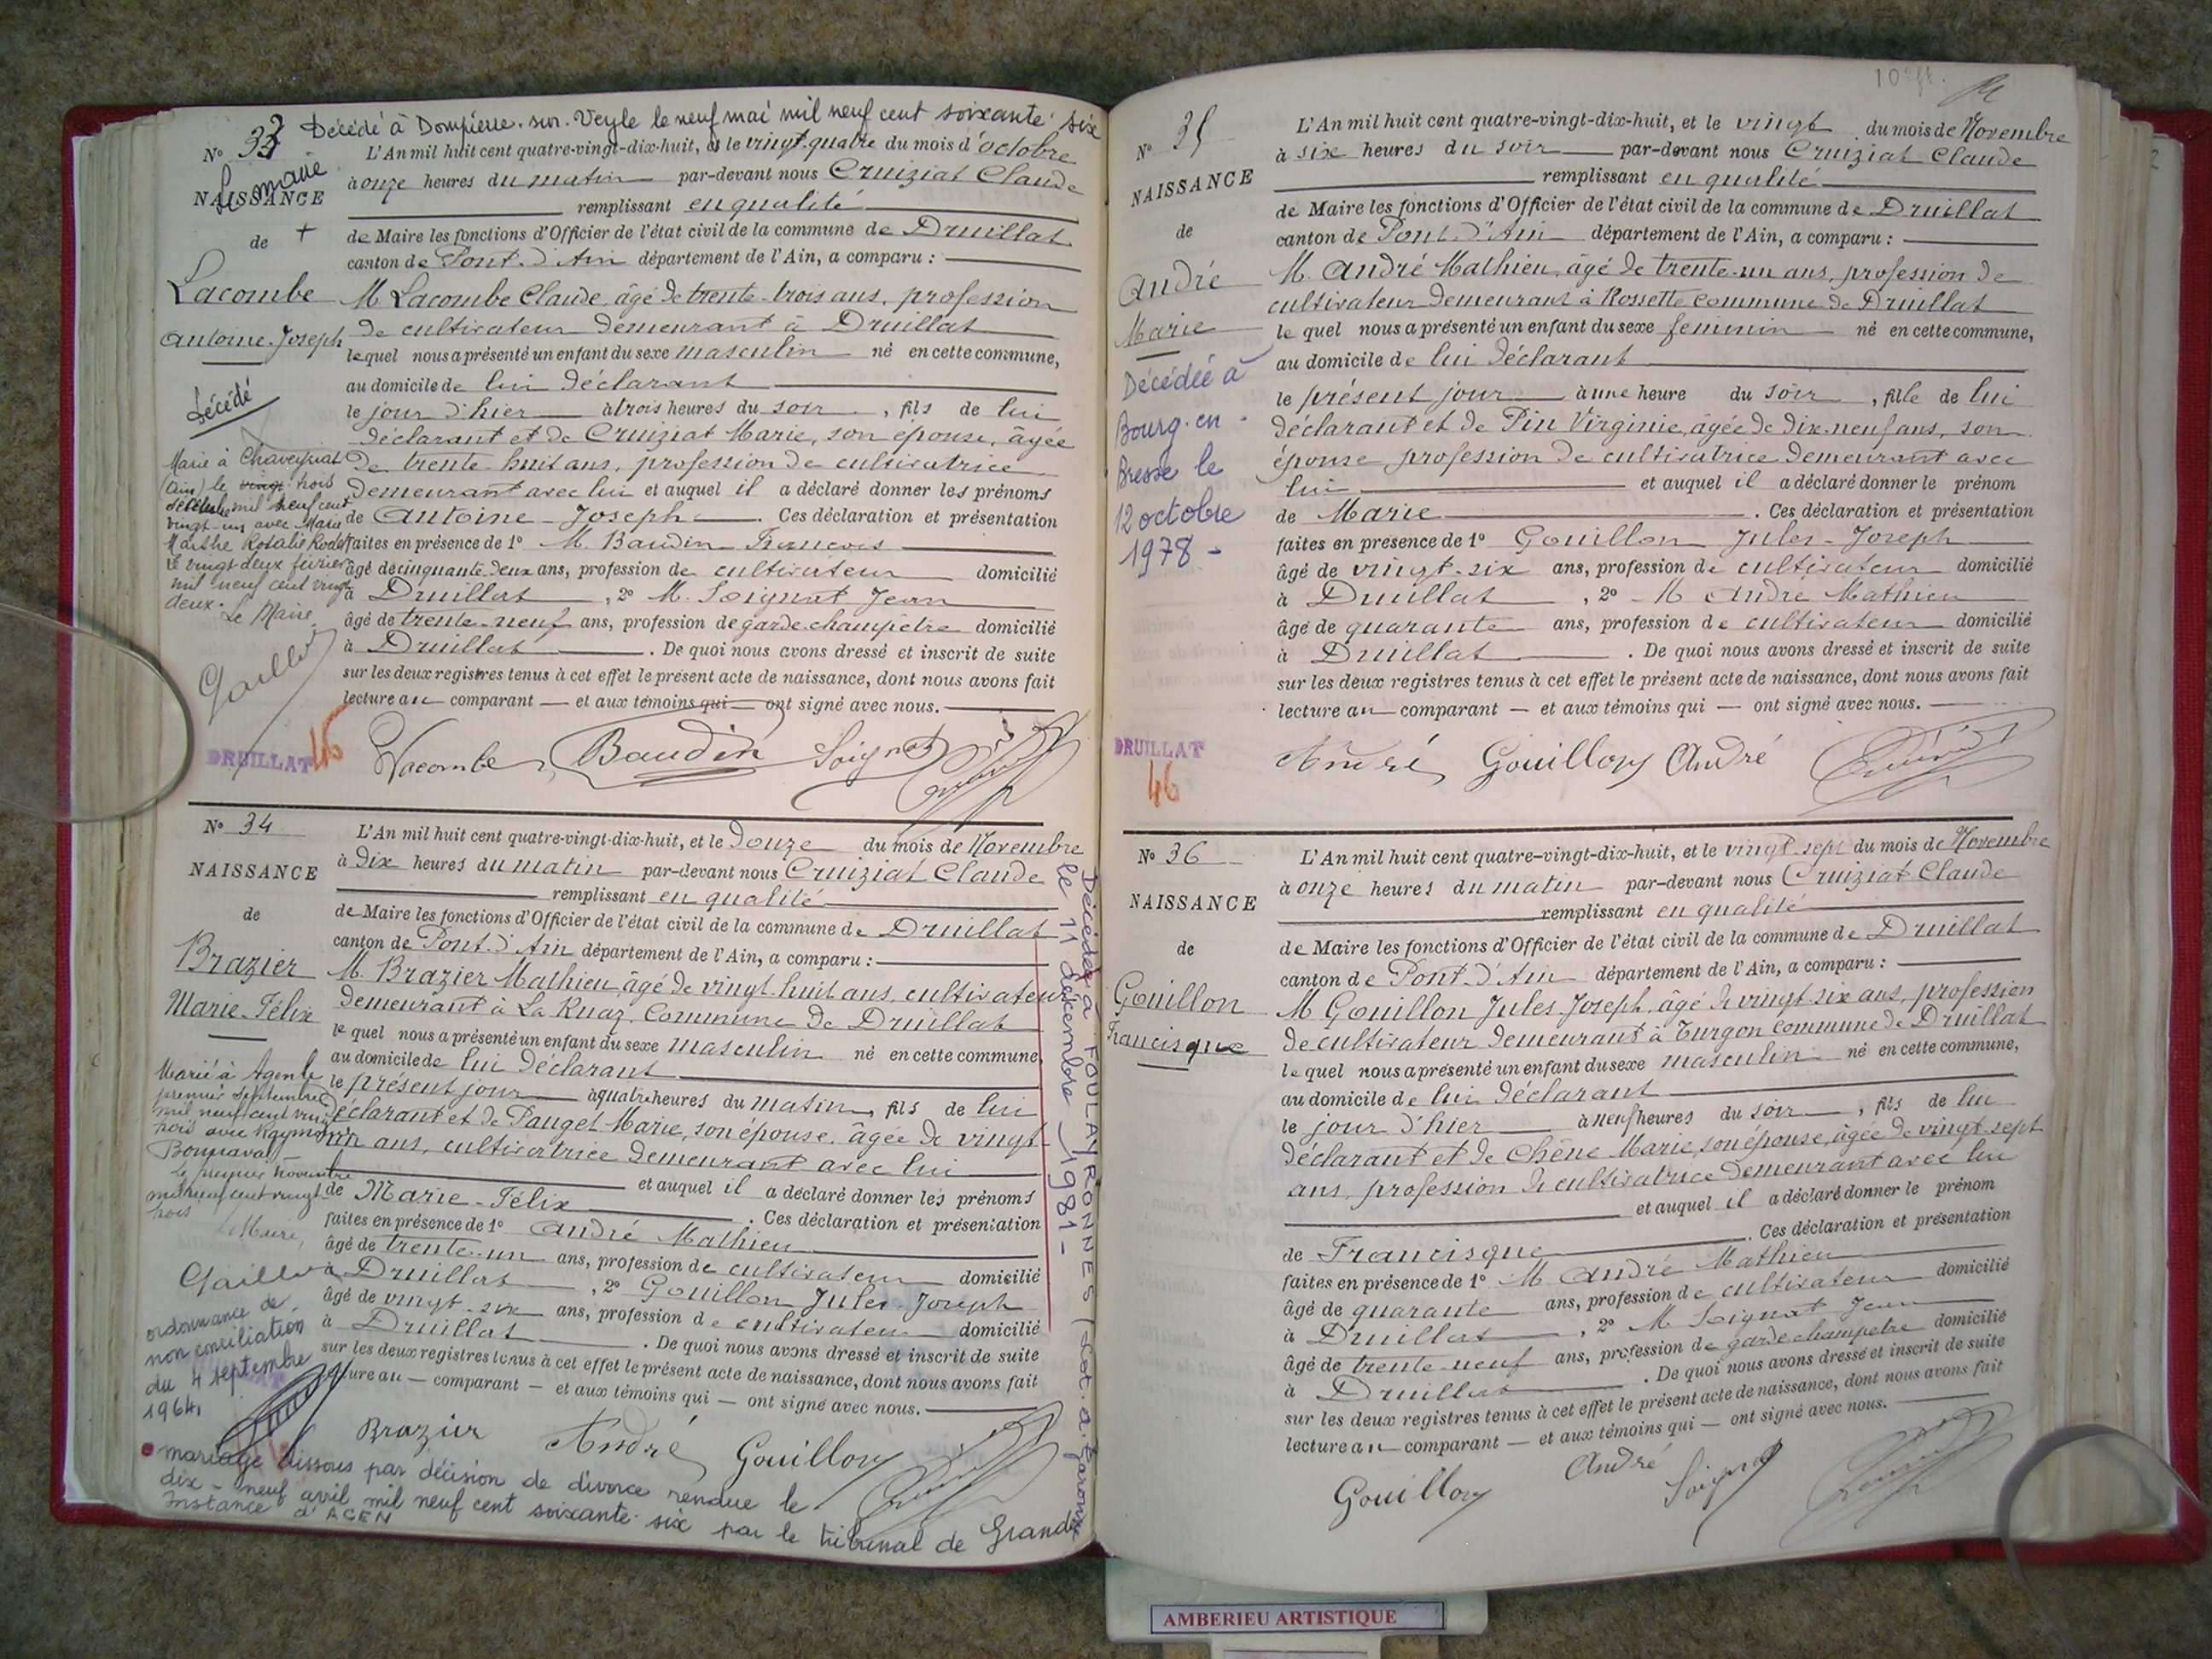 Décédé à Dompierre-sur-Veyle le neuf mai mil neuf cent soixante-six
N° 33
Le maire
NAISSANCE
de +
Lacombe
Antoine-Joseph
décédé
Marié à Chaveyriat
(Ain) le vingt trois
décembre mil neuf cent
vingt-un avec Marie
Marthe Rosalie
Le vingt deux février
mil neuf cent vingt
deux.
Le Maire
DRUILLAT
L'An mil huit cent quatre-vingt-dix-huit, et le vingt-quatre du mois d'octobre
à onze heures du matin par-devant nous Cruiziat Claude
remplissant en qualité
de Maire les fonctions d'Officier de l'état civil de la commune de Druillat
canton de Pont-d'Ain département de l'Ain, a comparu :
M Lacombe Claude, âgé de trente-trois ans, profession
de cultivateur demeurant à Druillat
lequel nous a présenté un enfant du sexe masculin né en cette commune,
au domicile de lui déclarant
le jour d'hier à trois heures du soir, fils de lui
déclarant et de Cruiziat Marie, son épouse, âgée
de trente-huit ans, profession de cultivatrice
demeurant avec lui et auquel il a déclaré donner les prénoms
de Antoine-Joseph. Ces déclaration et présentation
faites en présence de 1° M. Baudin François
âgé de cinquante-deux ans, profession de cultivateur domicilié
à Druillat, 2° M. Soignat Jean
âgé de trente-neuf ans, profession de garde-champetre domicilié
à Druillat. De quoi nous avons dressé et inscrit de suite
sur les deux registres tenus à cet effet le présent acte de naissance, dont nous avons fait
lecture au comparant et aux témoins qui ont signé avec nous.
Lacombe Baudin Soignat
N° 34
NAISSANCE
de
Brazier
Marie-Félix
Marié à Agen le
premier septembre
mil neuf cent vingt
trois avec Raymonde
le premier novembre
mil neuf cent vingt
trois
Le Maire,
ordonnance de
non conciliation
du 4 septembre
1964.
L'An mil huit cent quatre-vingt-dix-huit, et le douze du mois de Novembre
à dix heures du matin par-devant nous Cruiziat Claude
remplissant en qualité
de Maire les fonctions d'Officier de l'état civil de la commune de Druillat
canton de Pont-d'Ain département de l'Ain, a comparu :
M. Brazier Mathieu, âgé de vingt-huit ans, cultivateur
demeurant à La Ruaz, Commune de Druillat
lequel nous a présenté un enfant du sexe masculin né en cette commune,
au domicile de lui déclarant
le présent jour à quatre heures du matin, fils de lui
déclarant et de Pauget Marie, son épouse, âgée de vingt
un ans, cultivatrice demeurant avec lui
et auquel il a déclaré donner les prénoms
de Marie-Félix. Ces déclaration et présentation
faites en présence de 1° André Mathieu
âgé de trente-un ans, profession de cultivateur domicilié
à Druillat, 2° Gouillon Jules-Joseph
âgé de vingt-six ans, profession de cultivateur domicilié
à Druillat. De quoi nous avons dressé et inscrit de suite
sur les deux registres tenus à cet effet le présent acte de naissance, dont nous avons fait
lecture au comparant et aux témoins qui ont signé avec nous.
Brazier André Gouillon
mariage dissous par décision de divorce rendue le
dix-neuf avril mil neuf cent soixante-six par le tribunal de Grande
Instance d'AGEN
Décédé à FOULAYRONNES (Lot-et-Garonne)
le 11 décembre 1981-
N° 35
NAISSANCE
de
André
Marie
Décédée à
Bourg-en-
Bresse le
12 octobre
1978-
DRUILLAT
46
L'An mil huit cent quatre-vingt-dix-huit, et le vingt du mois de Novembre
à six heures du soir par-devant nous Cruiziat Claude
remplissant en qualité
de Maire les fonctions d'Officier de l'état civil de la commune de Druillat
canton de Pont-d'Ain département de l'Ain, a comparu :
M. André Mathieu, âgé de trente-un ans, profession de
cultivateur demeurant à Rossette commune de Druillat
lequel nous a présenté un enfant du sexe feminin né en cette commune,
au domicile de lui déclarant
le présent jour à une heure du soir, fille de lui
déclarant et de Pin Virginie, âgée de dix-neuf ans, son
épouse profession de cultivatrice demeurant avec
lui et auquel il a déclaré donner le prénom
de Marie. Ces déclaration et présentation
faites en presence de 1° Gouillon Jules-Joseph
âgé de vingt-six ans, profession de cultivateur domicilié
à Druillat, 2° M André Mathieu
âgé de quarante ans, profession de cultivateur domicilié
à Druillat. De quoi nous avons dressé et inscrit de suite
sur les deux registres tenus à cet effet le présent acte de naissance, dont nous avons fait
lecture au comparant — et aux témoins qui — ont signé avec nous.
André Gouillon André
N° 36
NAISSANCE
de
Gouillon
Francisque
L'An mil huit cent quatre-vingt-dix-huit, et le vingt-sept du mois de Novembre
à onze heures du matin par-devant nous Cruiziat Claude
remplissant en qualité
de Maire les fonctions d'Officier de l'état civil de la commune de Druillat
canton de Pont-d'Ain département de l'Ain, a comparu :
M Gouillon Jules-Joseph, âgé de vingt-six ans, profession
de cultivateur demeurant à Turgon commune de Druillat
lequel nous a présenté un enfant du sexe masculin né en cette commune,
au domicile de lui déclarant
le jour d'hier à neuf heures du soir, fils de lui
déclarant et de Chêne Marie, son épouse, âgée de vingt-sept
ans, profession de cultivatrice demeurant avec lui
et auquel il a déclaré donner le prénom
de Francisque. Ces déclaration et présentation
faites en présence de 1° M André Mathieu
âgé de quarante ans, profession de cultivateur domicilié
à Druillat, 2° M Soignat Jean
âgé de trente-neuf ans, profession de garde champetre domicilié
à Druillat. De quoi nous avons dressé et inscrit de suite
sur les deux registres tenus à cet effet le présent acte de naissance, dont nous avons fait
lecture au comparant — et aux témoins qui — ont signé avec nous.
Gouillon André Soignat
AMBERIEU ARTISTIQUE